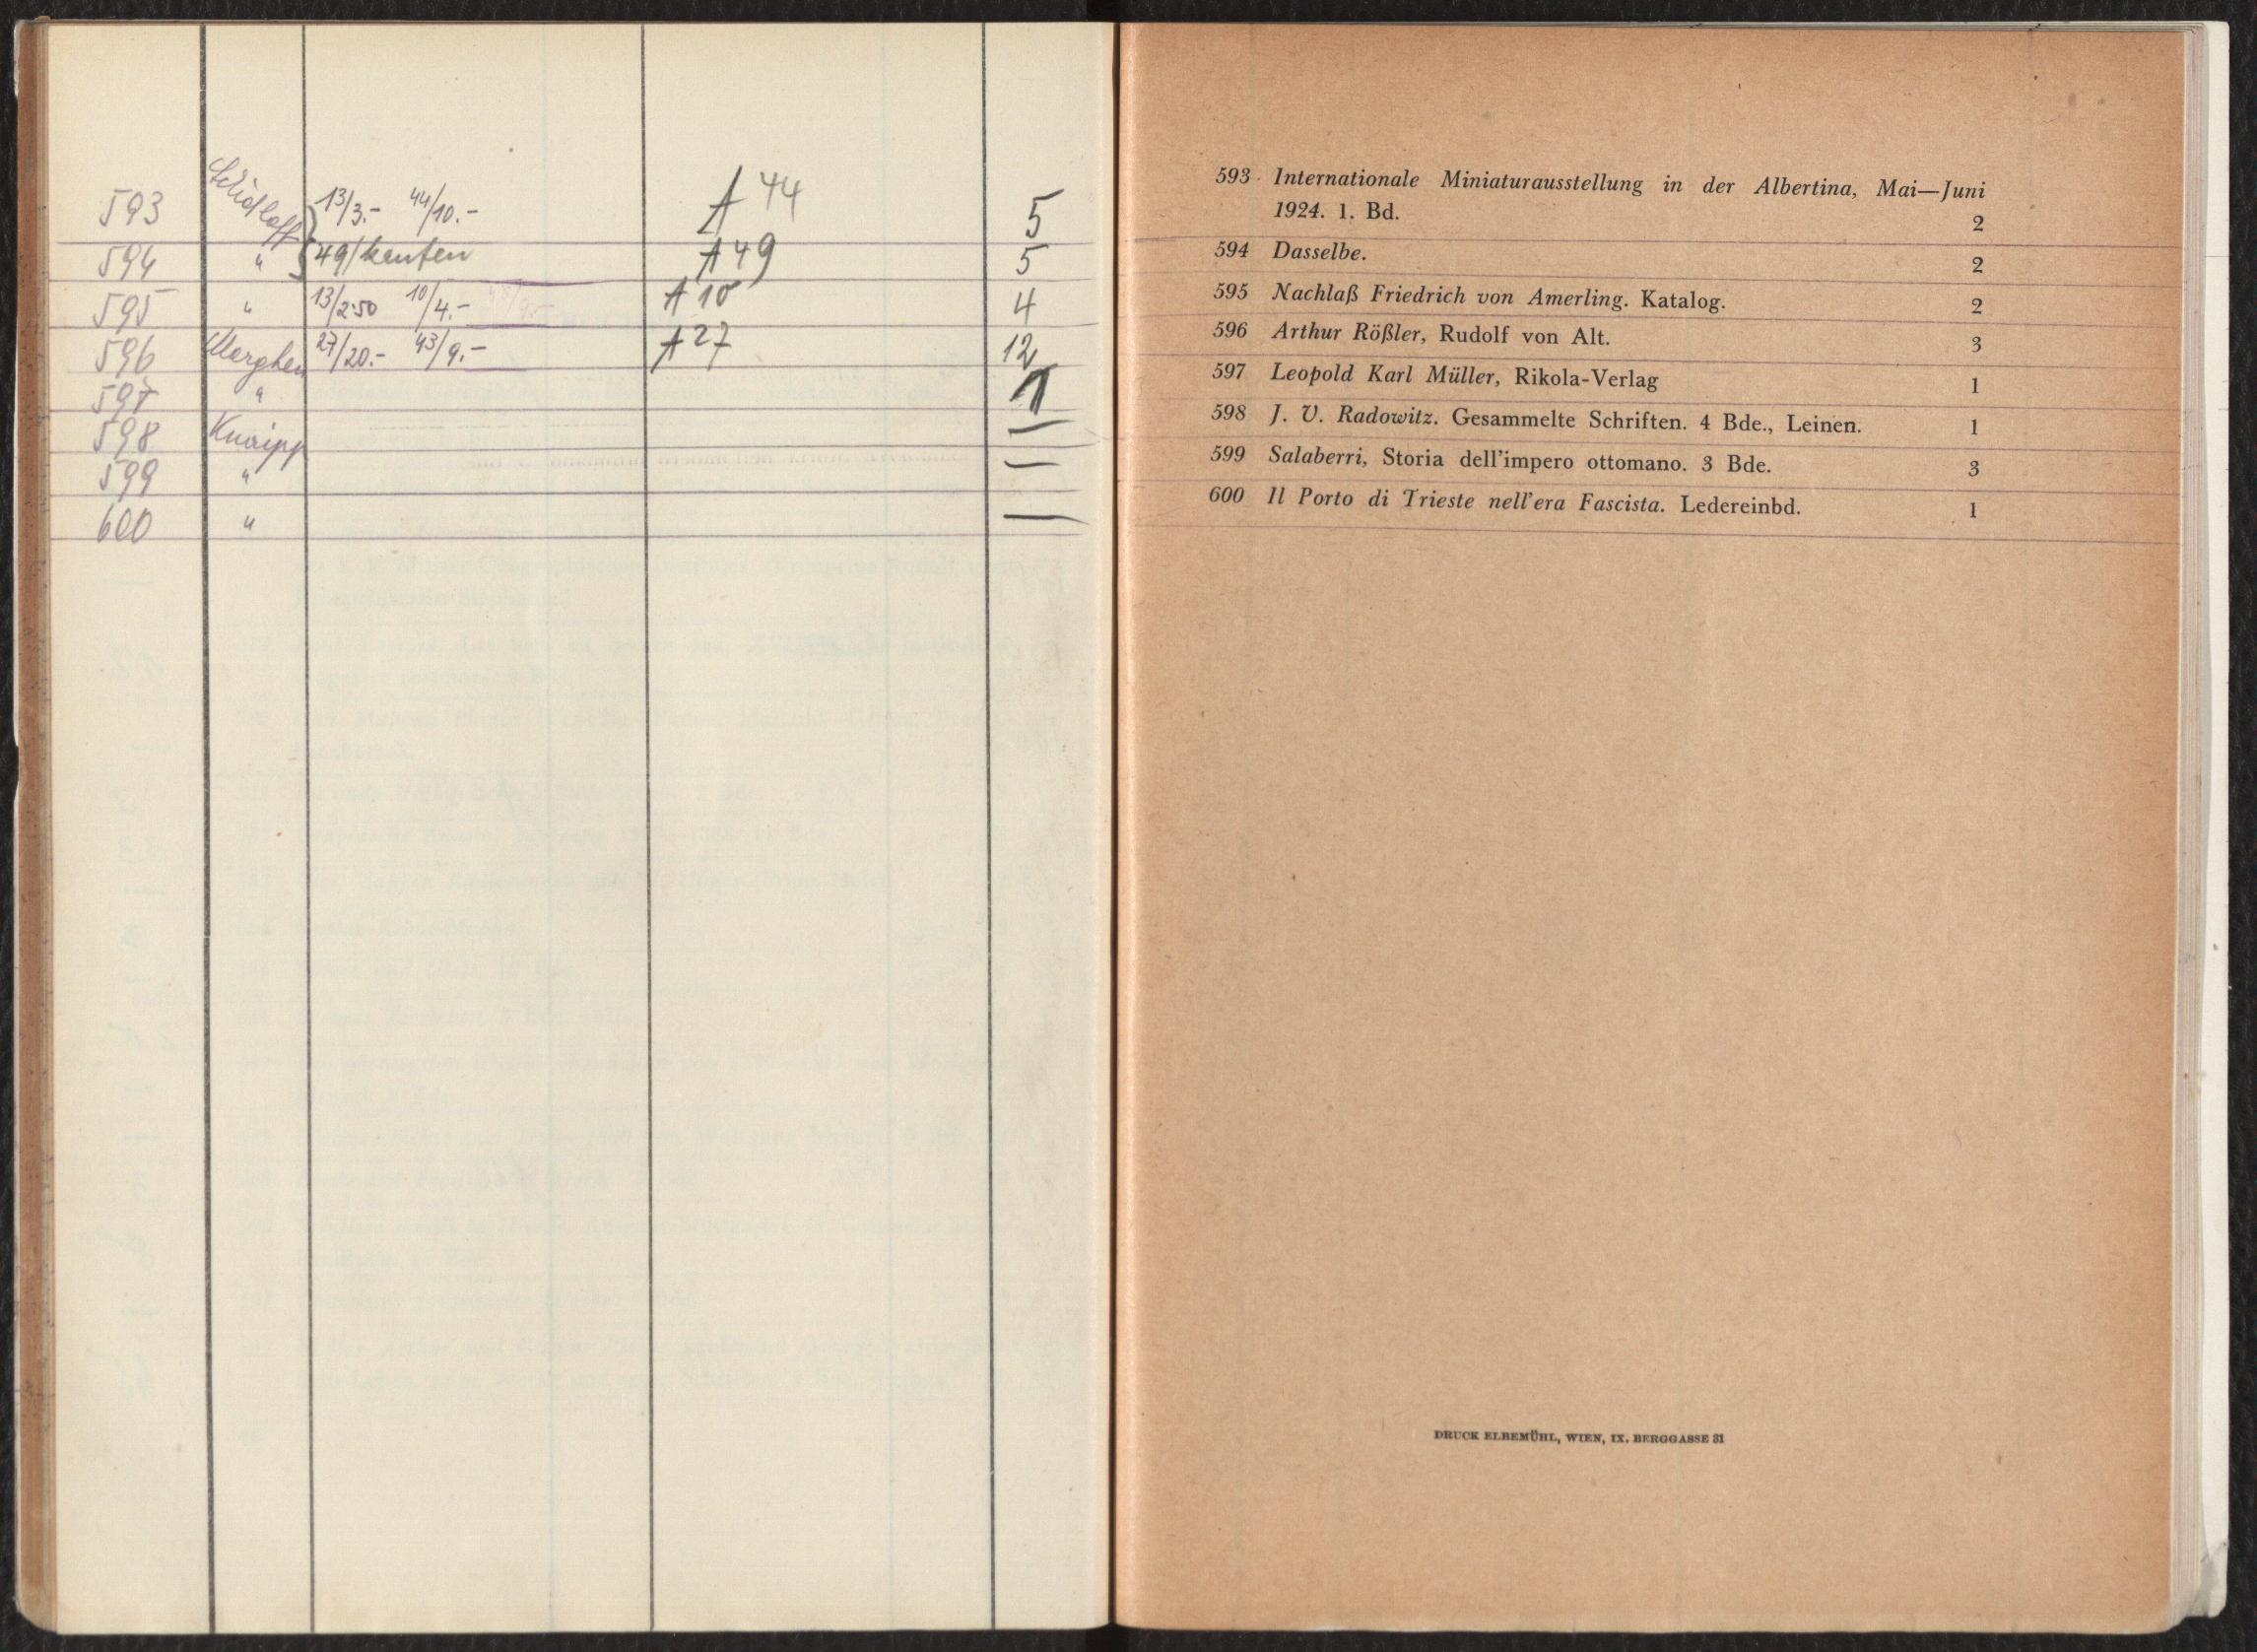 593 13/3.- 44/10.- A 44 5
594 " 49/ A 49 5
595 " 13/2·50 10/4.- A 10 4
596 27/20.- 43/9.- A 27 12
597 " 1
598 Knaipp —
599 " —
600 " —
593 Internationale Miniaturausstellung in der Albertina, Mai—Juni
1924. 1. Bd. 2
594 Dasselbe. 2
595 Nachlaß Friedrich von Amerling. Katalog. 2
596 Arthur Rößler, Rudolf von Alt. 3
597 Leopold Karl Müller, Rikola-Verlag 1
598 J. V. Radowitz. Gesammelte Schriften. 4 Bde., Leinen. 1
599 Salaberri, Storia dell'impero ottomano. 3 Bde. 3
600 Il Porto di Trieste nell'era Fascista. Ledereinbd. 1
DRUCK ELBEMÜHL, WIEN, IX. BERGGASSE 31